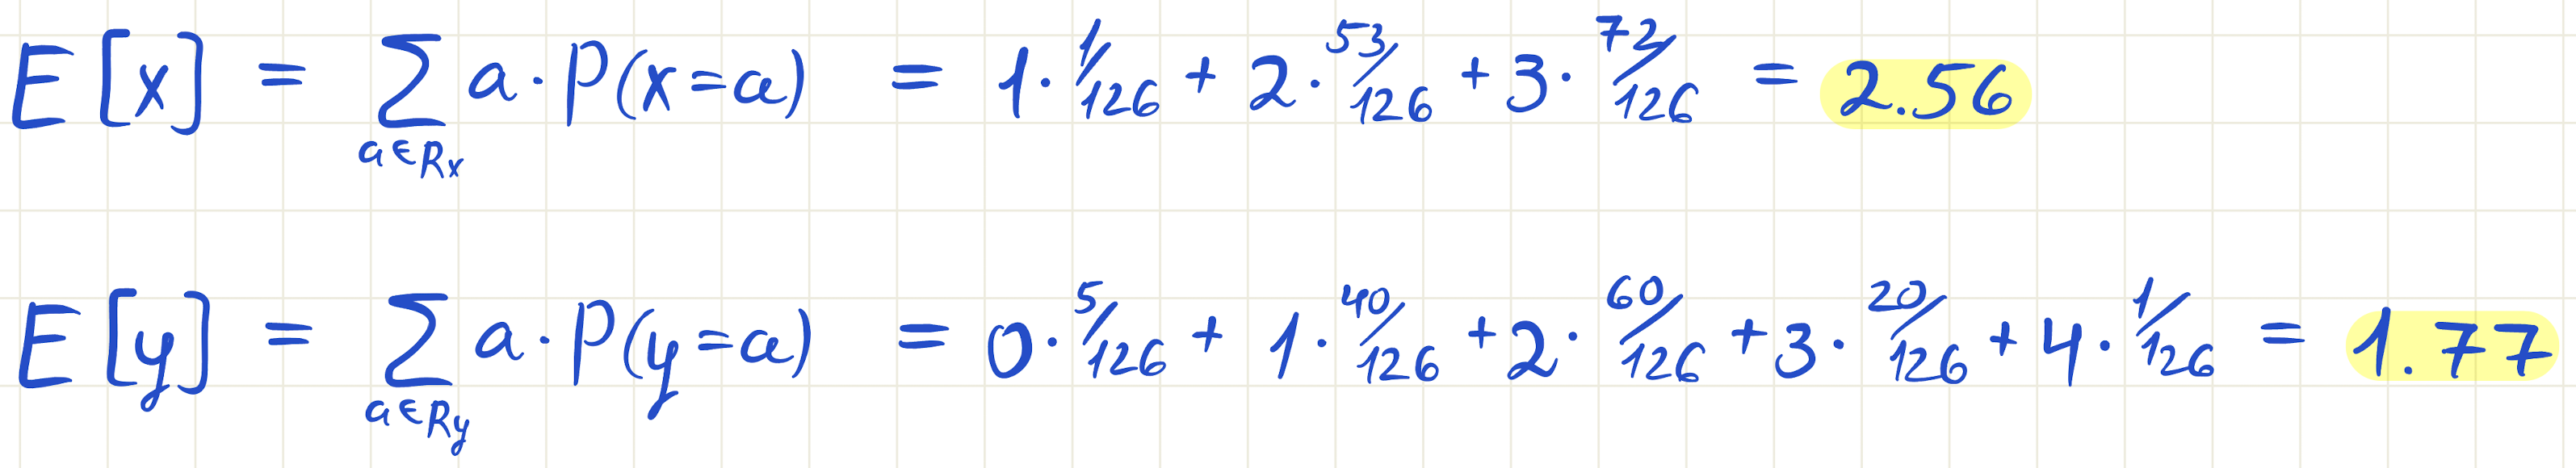 E[x] = ∑_{a∈R_x} a · P(x=a) = 1 · 1/126 + 2 · 53/126 + 3 · 72/126 = 2.56
E[y] = ∑_{a∈R_y} a · P(y=a) = 0 · 5/126 + 1 · 40/126 + 2 · 60/126 + 3 · 20/126 + 4 · 1/126 = 1.77